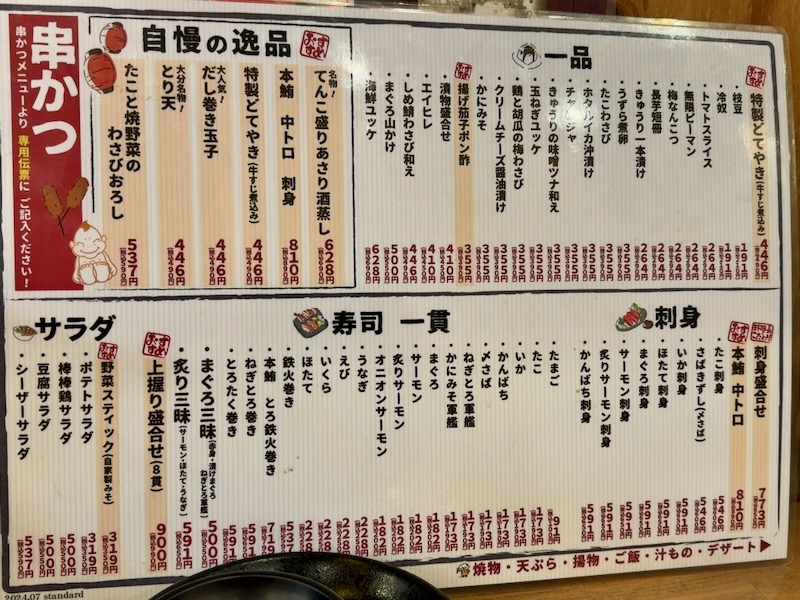 串かつ
串かつメニューより 専用伝票に ご記入ください！
自慢の逸品
おすすめ
名物！
てんこ盛りあさり酒蒸し 628円
本鮪 中トロ 刺身 810円
特製どてやき(牛すじ煮込み) 446円
大人気！
だし巻き玉子 446円
大分名物！
とり天 446円
たこと焼野菜のわさびおろし 537円
一品
おすすめ
特製どてやき(牛すじ煮込み) 446円
・枝豆 191円
・冷奴 211円
・トマトスライス 264円
・無限ピーマン 264円
・梅なんこつ 264円
・長芋短冊 264円
・きゅうり一本漬け
・うずら煮卵 355円
・たこわさび 355円
・ホタルイカ沖漬け 355円
・チャンジャ 355円
・きゅうりの味噌ツナ和え 355円
・玉ねぎユッケ 355円
・鶏と胡瓜の梅わさび 355円
・クリームチーズ醤油漬け 355円
・かにみそ 355円
おすすめ
揚げ茄子ポン酢 355円
・漬物盛合せ 410円
・エイヒレ 410円
・しめ鯖わさび和え 446円
・まぐろ山かけ 500円
・海鮮ユッケ 628円
刺身
刺身盛合せ 773円
おすすめ
本鮪 中トロ 810円
・たこ刺身 546円
・さばきずし(〆さば) 546円
・いか刺身 591円
・ほたて刺身 591円
・まぐろ刺身 591円
・サーモン刺身 591円
・炙りサーモン刺身 591円
・かんぱち刺身 591円
寿司 一貫
・たまご
・たこ 173円
・いか 173円
・かんぱち 173円
・〆さば 173円
・ねぎとろ軍艦 173円
・かにみそ軍艦 173円
・まぐろ 182円
・サーモン 182円
・炙りサーモン 182円
・オニオンサーモン 182円
・うなぎ 228円
・えび 228円
・いくら 228円
・ほたて 228円
・鉄火巻き 537円
・本鮪 とろ鉄火巻き 719円
・ねぎとろ巻き 591円
・とろたく巻き 591円
・まぐろ三昧(赤身・漬けまぐろ ねぎとろ軍艦) 500円
・炙り三昧(サーモン・ほたて・うなぎ) 591円
おすすめ
上握り盛合せ(8貫) 900円
サラダ
おすすめ
野菜スティック(自家製みそ) 319円
・ポテトサラダ 319円
・棒棒鶏サラダ 500円
・豆腐サラダ 500円
・シーザーサラダ 537円
焼物・天ぷら・揚物・ご飯・汁もの・デザート▶
2024.07 standard